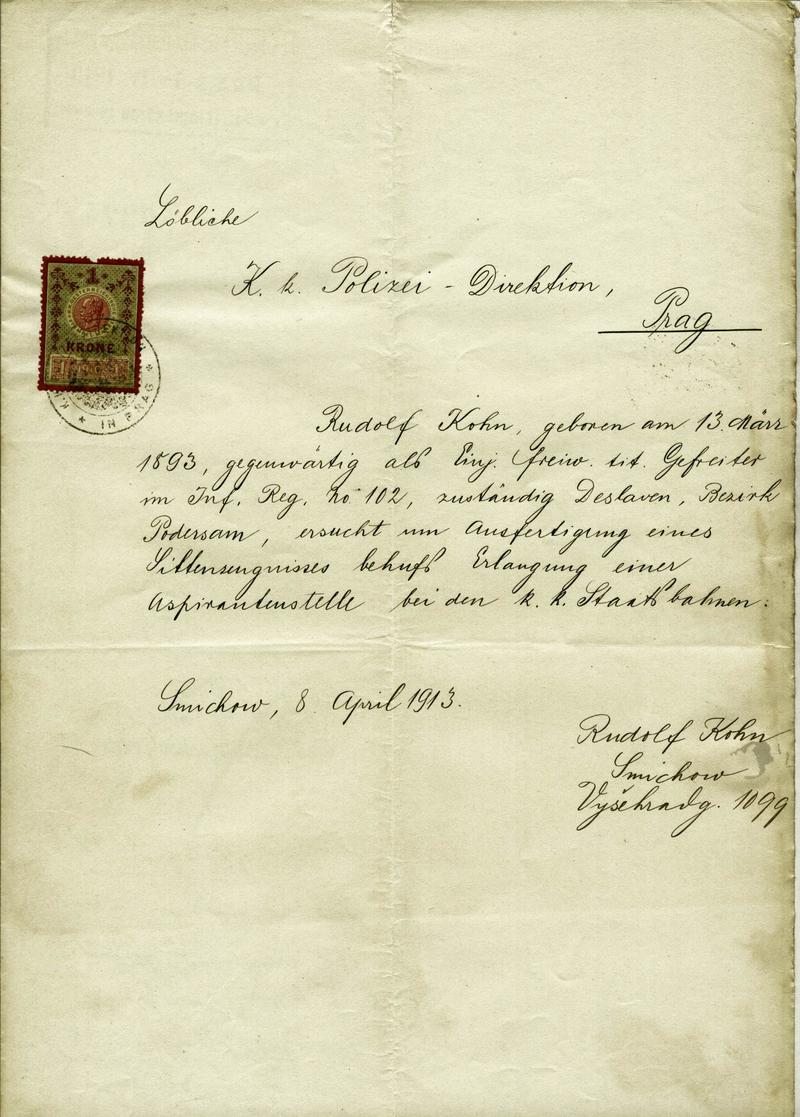 Löbliche
K. k. Polizei - Direktion,
Prag
1
KRONE
IN PRAG
Rudolf Kohn, geboren am 13. März
1893, gegenwärtig als Einj. freiw. tit. Gefreiter
im Inf. Reg. No 102, zuständig Deslaven, Bezirk
Podersam, ersucht um Ausfertigung eines
Sittenzeugnisses behufs Erlangung einer
Aspirantenstelle bei den k. k. Staatsbahnen.
Smichow, 8. April 1913.
Rudolf Kohn
Smichow
Vyšehradg. 1099